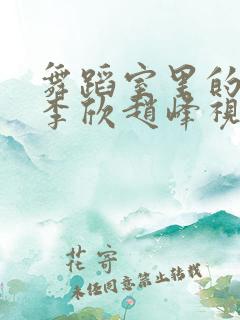 舞蹈室里的
李欣赵峰視
花寄
未经同意禁止转载